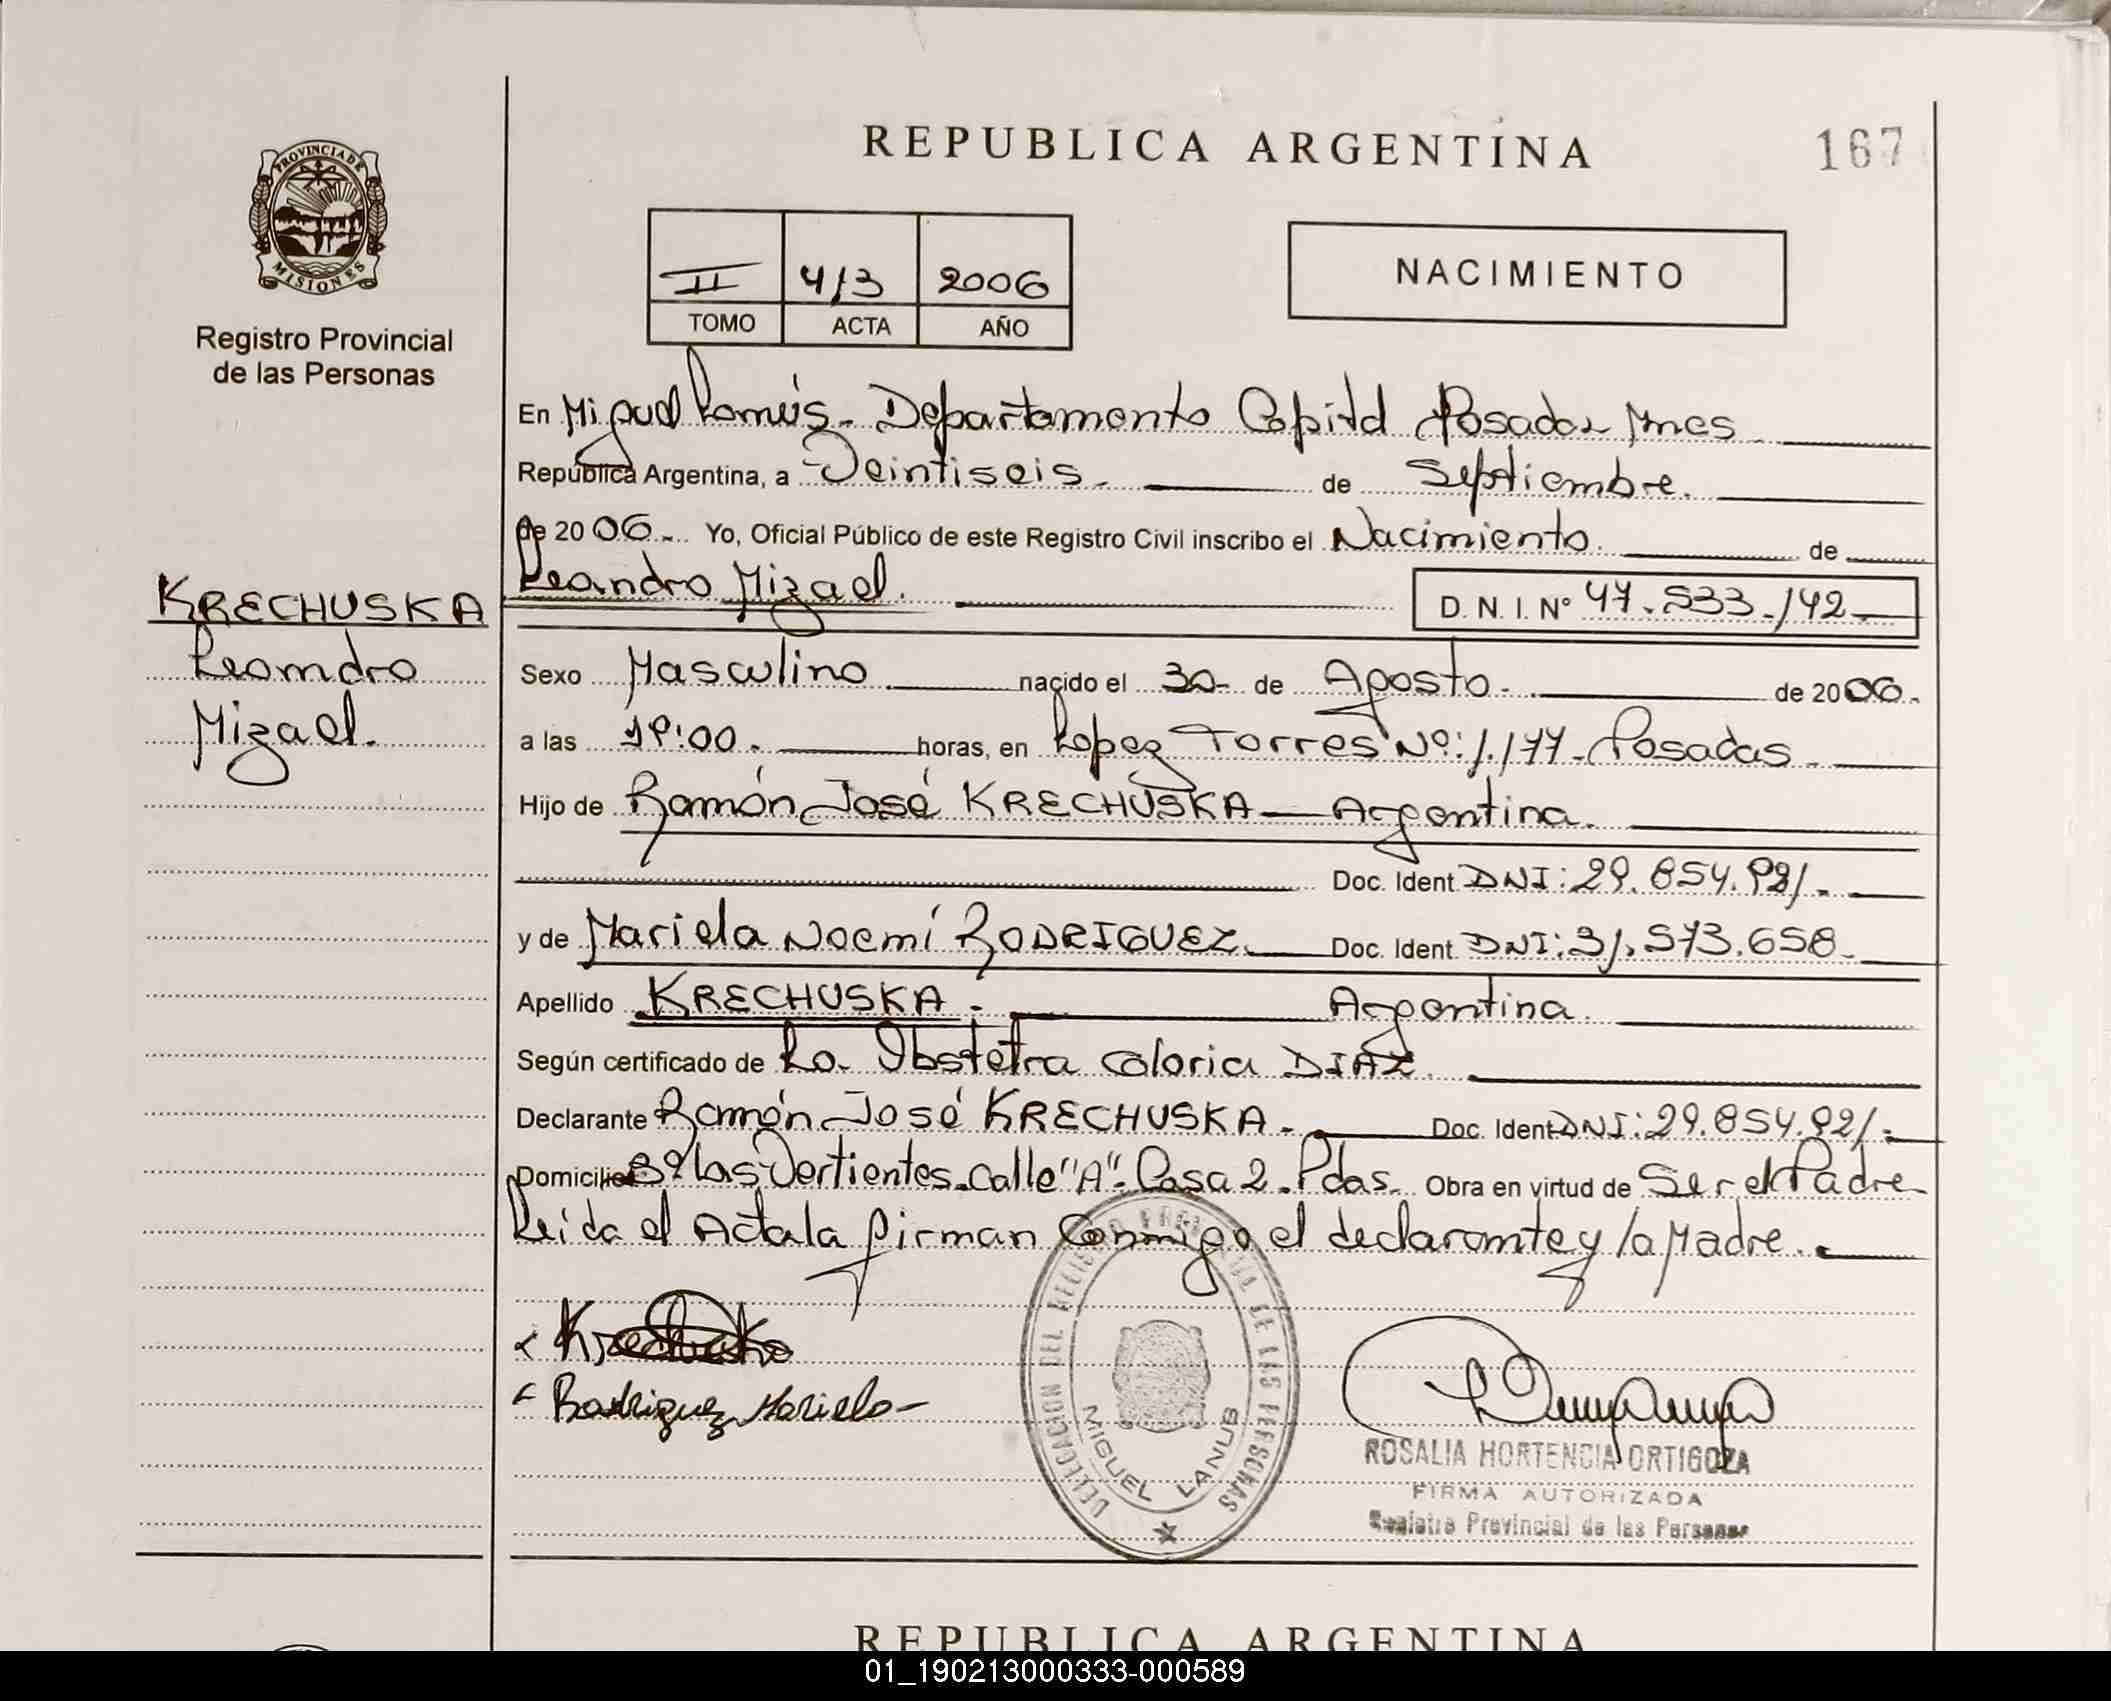 REPUBLICA ARGENTINA
167
PROVINCIA DE MISIONES
Registro Provincial
de las Personas
II 413 2006
TOMO ACTA AÑO
NACIMIENTO
En Miguel Lanús - Departamento Capital Posadas Mnes
República Argentina, a Veintiseis. de Septiembre.
de 2006 Yo, Oficial Público de este Registro Civil inscribo el Nacimiento. de
Leandro Mizael. D. N. I. Nº 47.533.142
KRECHUSKA
Leandro
Mizael.
Sexo Masculino nacido el 30 de Agosto. de 2006.
a las 19:00. horas, en Lopez Torres Nº: 1.177 - Posadas
Hijo de Ramón José KRECHUSKA Argentina.
Doc. Ident. DNI: 29.854.921.
y de Mariela Noemí RODRIGUEZ. Doc. Ident. DNI: 31.573.658.
Apellido KRECHUSKA. Argentina.
Según certificado de La. Obstetra Gloria DIAZ.
Declarante Ramón José KRECHUSKA. Doc. Ident DNI: 29.854.921.
Domicilio Bº Las Vertientes. Calle "A". Casa 2. Pdas. Obra en virtud de Ser el Padre
Leida el Acta la firman Conmigo el declarante y la Madre.
Rodriguez Mariela
DELEGACION DEL REGISTRO PROVINCIAL DE LAS PERSONAS
MIGUEL LANUS
ROSALIA HORTENCIA ORTIGOZA
FIRMA AUTORIZADA
Registro Provincial de las Personas
REPUBLICA ARGENTINA
01_190213000333-000589